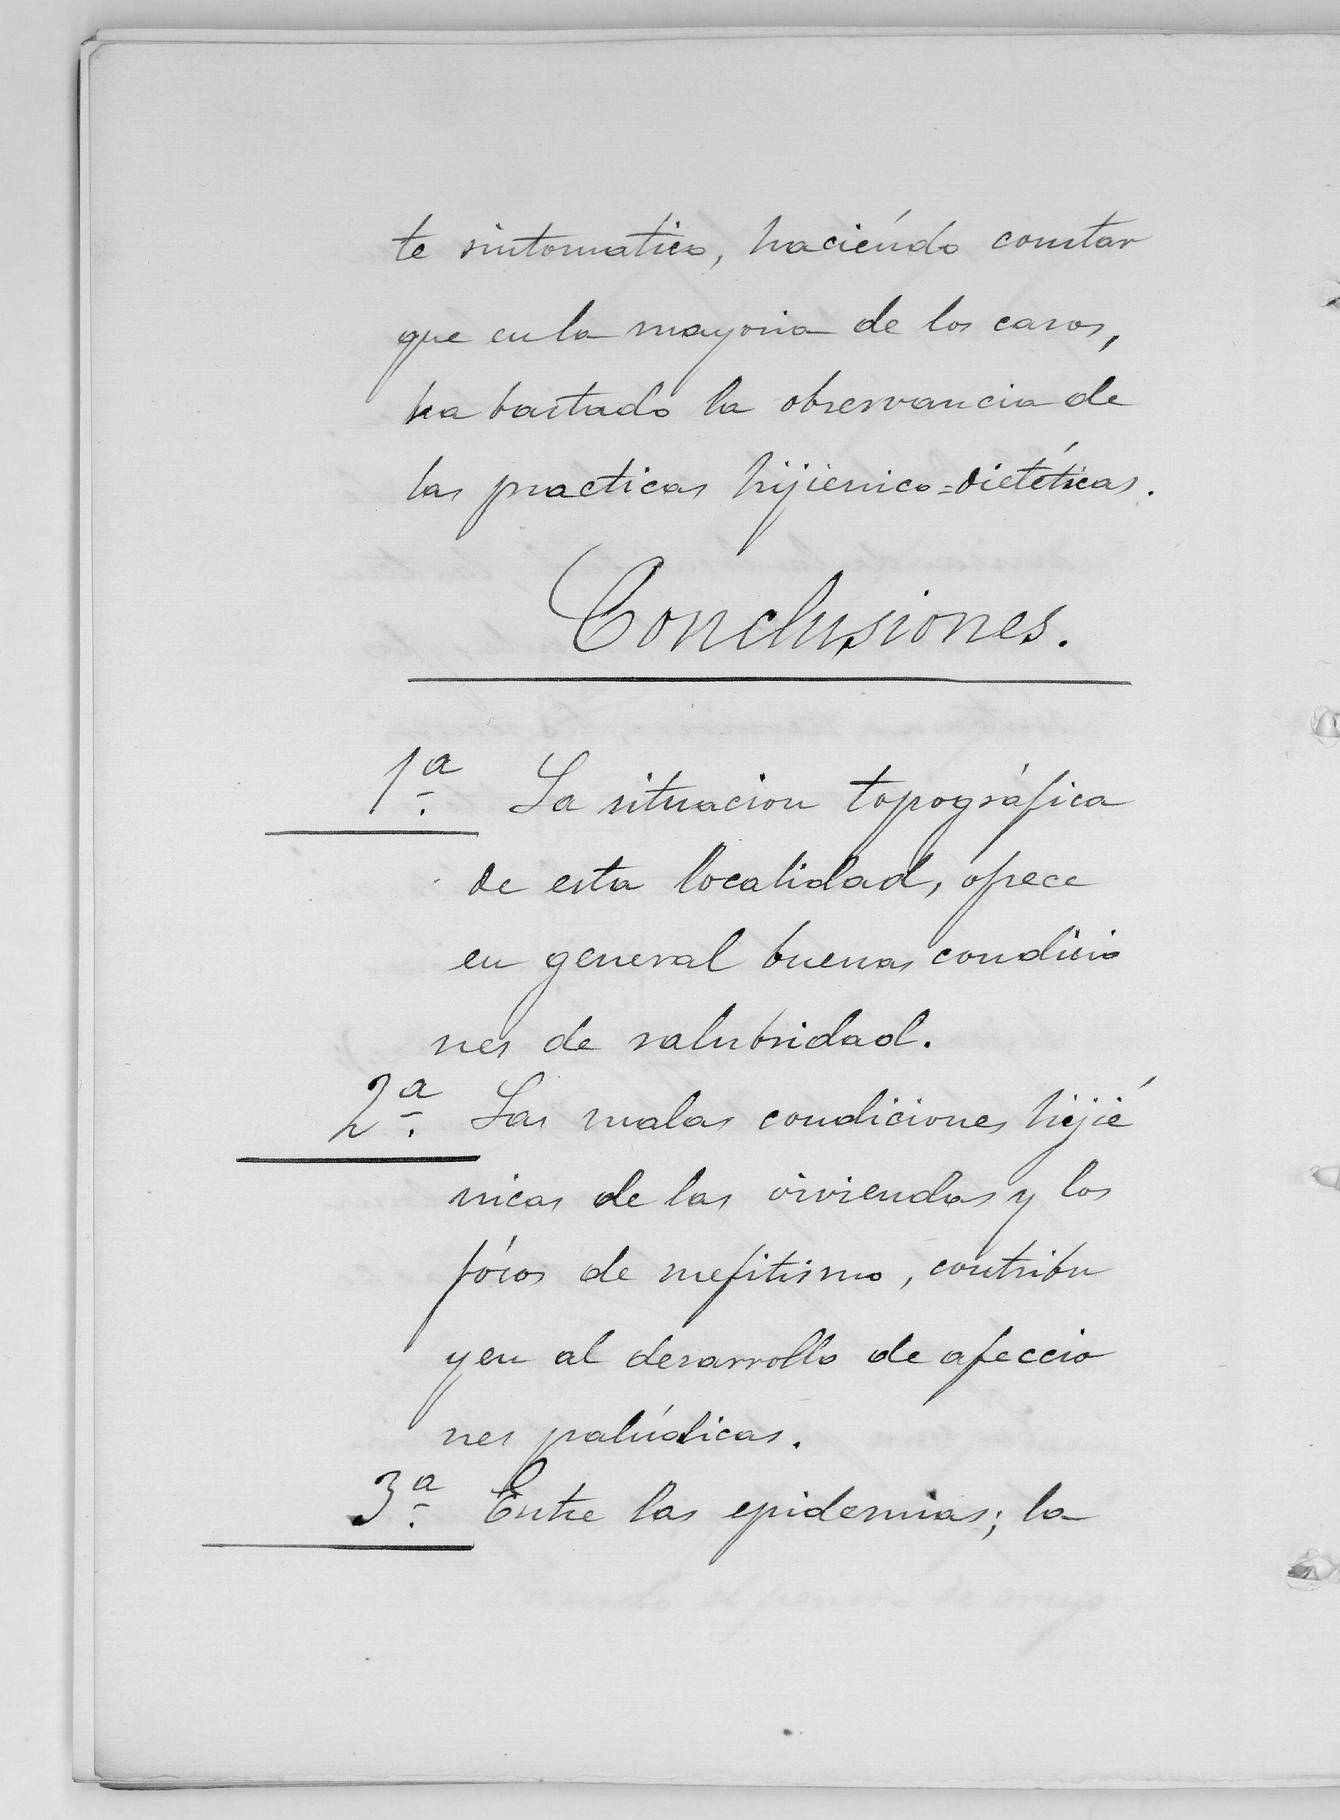 te sintomatico, haciéndo constar
que en la mayoria de los casos,
ha bastado la observancia de
las practicas hijienico=dietéticas.
Conclusiones.
1ª. La situacion topográfica
de esta localidad, ofrece
en general buenas condicio
nes de salubridad.
2ª. Las malas condiciones hijié
nicas de las viviendas y los
fócos de mefitismo, contribu
yen al desarrollo de afeccio
nes palúdicas.
3ª. Entre las epidemias; la